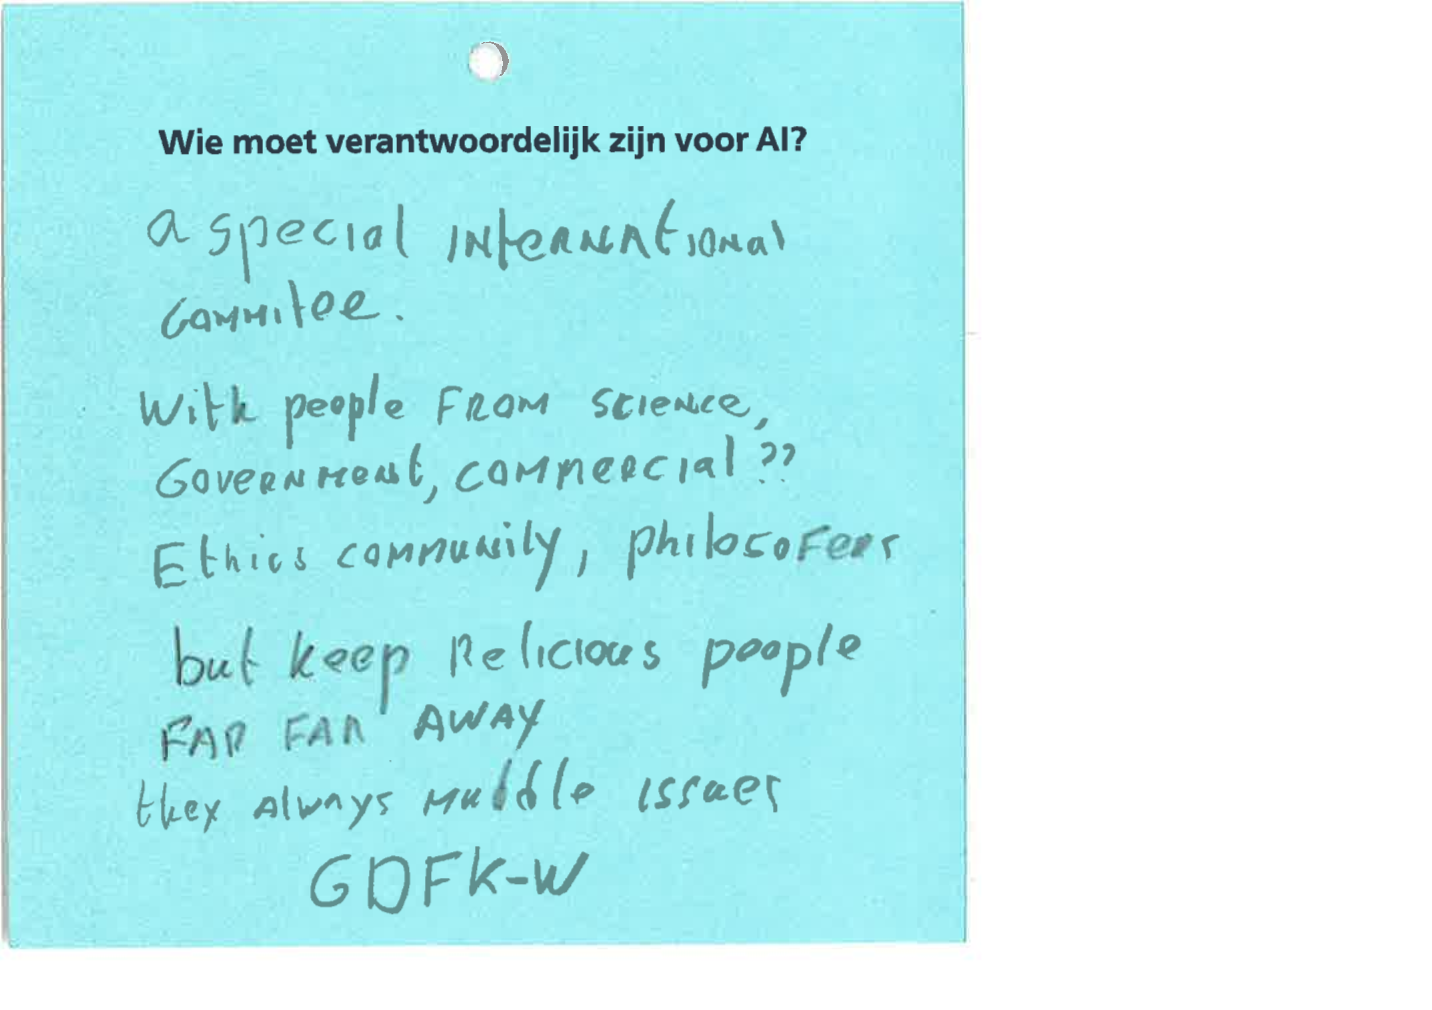 Wie moet verantwoordelijk zijn voor AI?
a special INterNAtIONal
Commitee.
With people FROM science,
Government, commercial ??
Ethics community, philosofers
but keep Relicious people
FAR FAR AWAY
they always muddle issues
GDFK-W